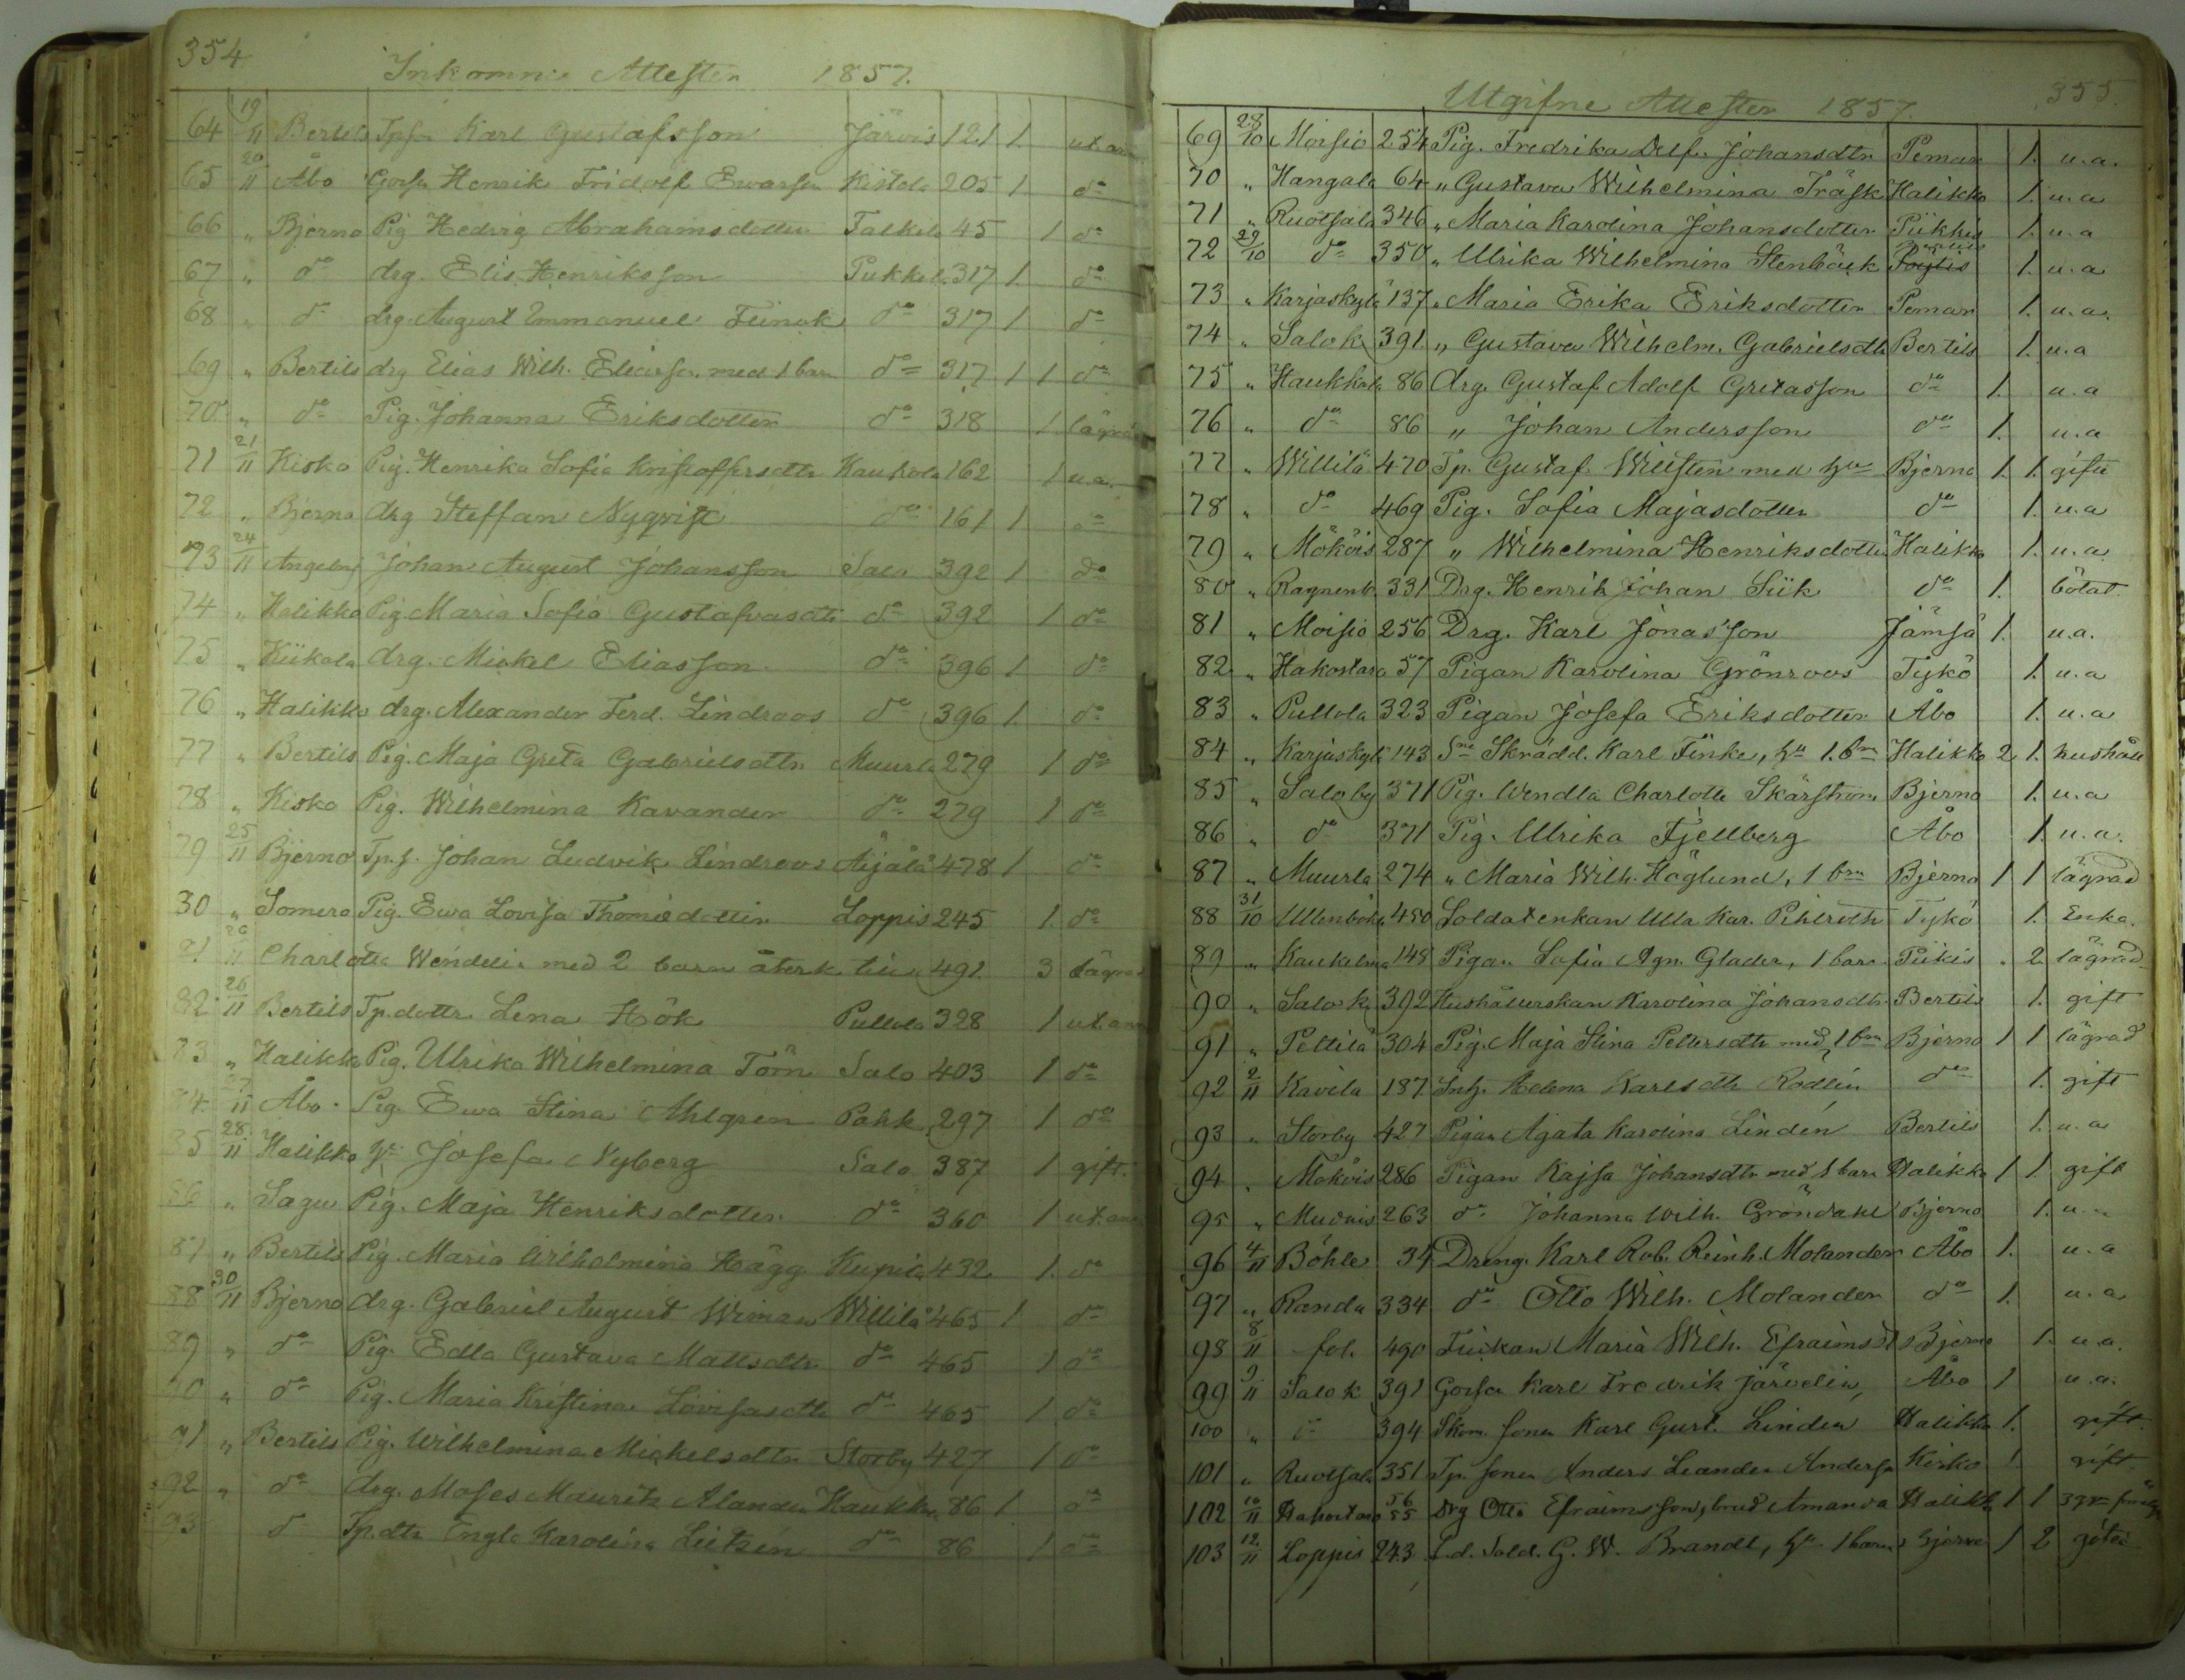 354
Inkomne Attester 1857.
64 19/11 Bertils Tpsn Karl Gustafsson Järvis 121 1
65 20/11 Åbo Henrik Fridolf Kistola 205 1 do
66 " Bjerno Pig Hedvig Abrahamsdotter 45 1 do
67 " do drg. Elis Henriksson Pukkila 317 1 do
68 " do drg. August Emmanuel do 317 1 do
69 " Bertils drg Elias Wilh. med 1 barn do 317 1 1 do
70 " do Pig. Johanna Eriksdotter do 318 1 lägrad
71 21/11 Kisko Pig. Henrika Sofia Kristoffersdtr Kaukola 162 1 u.a.
72 " Bjerno drg Steffan Nyqvist do 161 1 do
73 24/11 Johan August Johansson Salo 392 1 do
74 " Halikko Pig. Maria Sofia do 392 1 do
75 " Kiikala drg. Mickel Eliasson do 396 1 do
76 " Halikko drg. Alexander Ferd. Lindroos do 396 1 do
77 " Bertils Pig. Maja Greta Gabrielsdtr Muurla 279 1 do
78 " Kisko Pig. Wilhelmina Kavander do 279 1 do
79 25/11 Bjerno Tp.s. Johan Ludvik Lindroos Äijälä 478 1 do
80 " Somero Pig. Ewa Lovisa Loppis 245 1. do
81 26/11 Charlotta med 2 barn återk. 491 3 lägrad
82 26/11 Bertils Tp.dottr Lena Hök Pullola 328 1
83 " Halikko Pig. Ulrika Wilhelmina Törn Salo 403 1 do
84 27/11 Åbo Pig. Ewa Stina Ahlgren Pahk. 297 1 do
85 28/11 Halikko Josefa Nyberg Salo 387 1 gift.
86 " Sagu Pig. Maja Henriksdotter do 360 1
87 " Bertils Pig. Maria Wilhelmina Hägg 432 1. do
88 30/11 Bjerno drg. Gabriel August Wiman Willilä 465 1 do
89 " do Pig. Edla Gustava Mattsdtr do 465 1 do
90 " do Pig. Maria Kristina Lovisasdtr do 465 1 do
91 " Bertils Pig. Wilhelmina Mickelsdtr Storby 427 1 do
92 " do drg. Moses Maurits Alander Haukk. 86 1 do
93 do Tp.dtr Engla Karolina do 86 1 do
Utgifne Attester 1857. 355.
69 28/10 Moisio 254 Pig. Fredrika Delf. Johansdtr Pemar 1. u.a.
70 " Hangala 64 " Gustava Wilhelmina Träsk Halikko 1. u.a
71 " Ruotsala 346 " Maria Karolina Johansdotter Piikkis 1. u.a
72 29/10 do 350 " Ulrika Wilhelmina Stenbäck 1. u.a
73 " Karjaskylä 137 " Maria Erika Eriksdotter Pemar 1. u.a.
74 " Salo k. 391 " Gustava Wilhelm. Gabrielsdtr Bertils 1. u.a
75 " Haukkala 86 Drg. Gustaf Adolf Gretasson do 1. u.a
76 " do 86 " Johan Andersson do 1. u.a
77 " Willilä 470 Tp. Gustaf med hu Bjerno 1. 1. gifte
78 " do 469 Pig. Sofia Majasdotter do 1. u.a
79 " Mököis 287 " Wilhelmina Henriksdotter Halikko 1. u.a
80 " 331 Drg. Henrik Johan Siik do 1. bötat.
81 " Moisio 256 Drg. Karl Jonasson Jämsä 1. u.a.
82 " Hakostaro 57 Pigan Karolina Grönroos Tykö 1. u.a
83 " Pullola 323 Pigan Josefa Eriksdotter Åbo 1. u.a
84 " Karjaskylä 143 Skrädd. Karl Finke, hu 1. bn Halikko 2 1.
85 " Salo by 371 Pig. Wendla Charlotta Skärström Bjerno 1. u.a
86 " do 371 Pig. Ulrika Fjellberg Åbo 1. u.a.
87 " Muurla 274 " Maria Wilh. Höglund, 1 brn Bjerno 1 1 lägrad
88 31/10 450 Soldatenkan Ulla Kar. Tykö 1. Enka.
89 " 148 Pigan Sofia Agn. Glader, 1 barn Piikis " 2 lägrad
90 " Salo k. 392 Hushållerskan Karolina Johansdtr Bertils 1. gift
91 " Peltila 304 Pig. Maja Stina Pettersdtr med 1 bn Bjerno 1 1 lägrad
92 2/11 Kavila 187 Inh. Helena Karlsdtr Rodlin do 1. gift
93 " Storby 427 Pigan Agata Karolina Linden Bertils 1. u.a
94 " Mököis 286 Pigan Kajsa Johansdtr med 1 barn Halikko 1 1. gift
95 " 263 do Johanna Wilh. Gröndahl Bjerno 1. u.a
96 4/11 Böhle 34 Dreng. Karl Rob. Reinh. Molander Åbo 1. u.a
97 " Randa 334 do Otto Wilh. Molander do 1. u.a
98 8/11 fol. 490 Flickan Maria Wilh. Efraimsdt Bjerno 1. u.a.
99 9/11 Salo k 391 Karl Fredrik Järvelin, Åbo 1 u.a.
100 " do 394 Skom. sonen Karl Gust. Linden Halikko 1. gift.
101 " Ruotsala 351 Tp. sonen Anders Leander Kisko 1 gift
102 10/11 Hakostaro 56 55 drg Otto Efraimsson, brud Amanda Halikko 1 1 3 gr.
103 12/11 Loppis 243 Sold. G. W. Brandt, hu 1 barn Bjerno 1 2 gifte